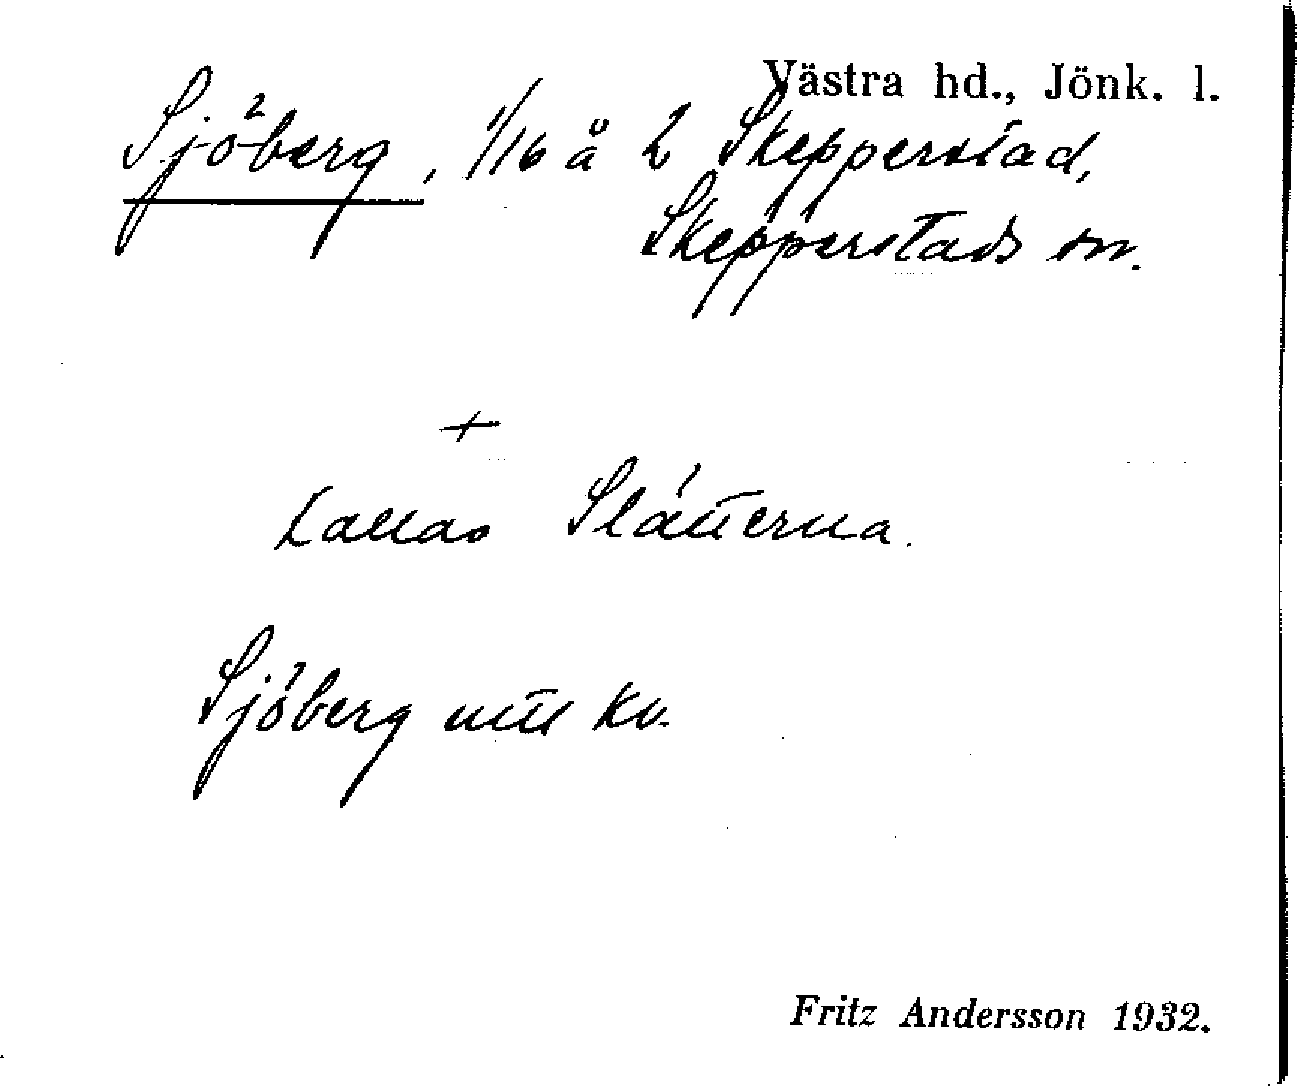 Västra hd., Jönk. l.
Sjöberg, 1/16 å 2 Skepperstad,
Skepperstads sn.
+
Kallas Slätterna.
Sjöberg nytt kv.
Fritz Andersson 1932.